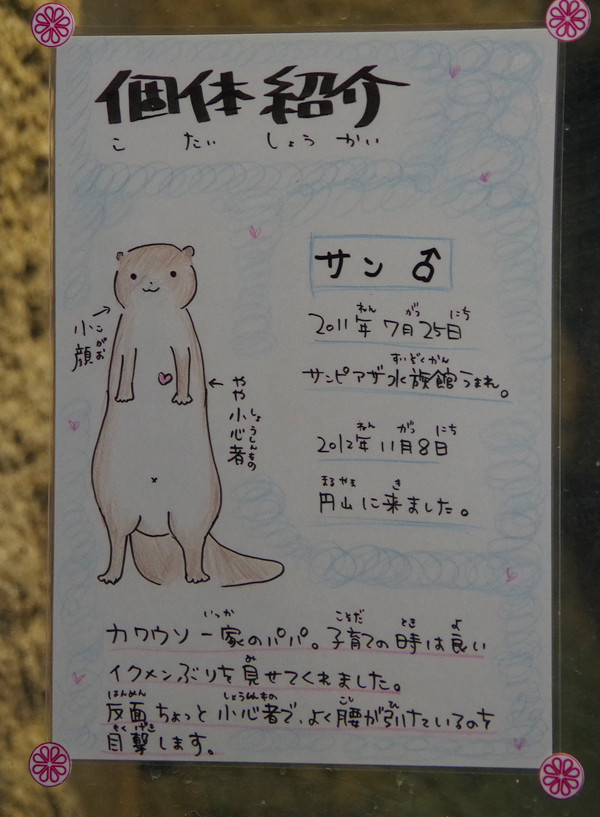 個体紹介
こ たい しょう かい
サン ♂
ねん がつ にち
2011年 7月25日
すいぞくかん
サンピアザ水族館うまれ。
ねん がつ にち
2012年 11月8日
まるやま き
円山に来ました。
こがお
小顔
しょうしんもの
やや小心者
いっか こそだ とき よ
カワウソ一家のパパ。子育ての時は良い
み
イクメンぶりを見せてくれました。
はんめん しょうしんもの こし ひ
反面ちょっと小心者で、よく腰が引けているのを
もくげき
目撃します。